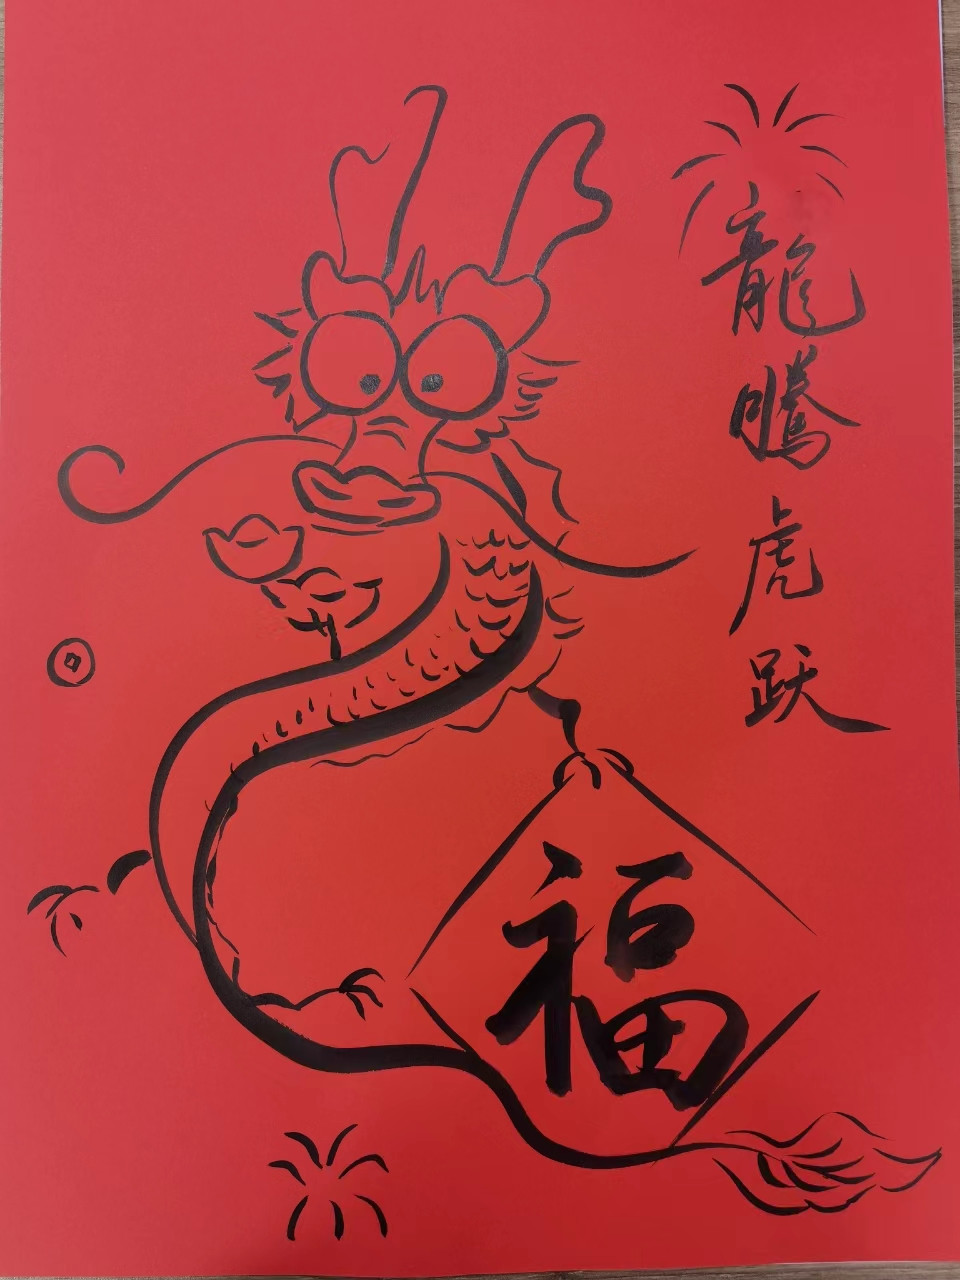 龍騰虎跃
福